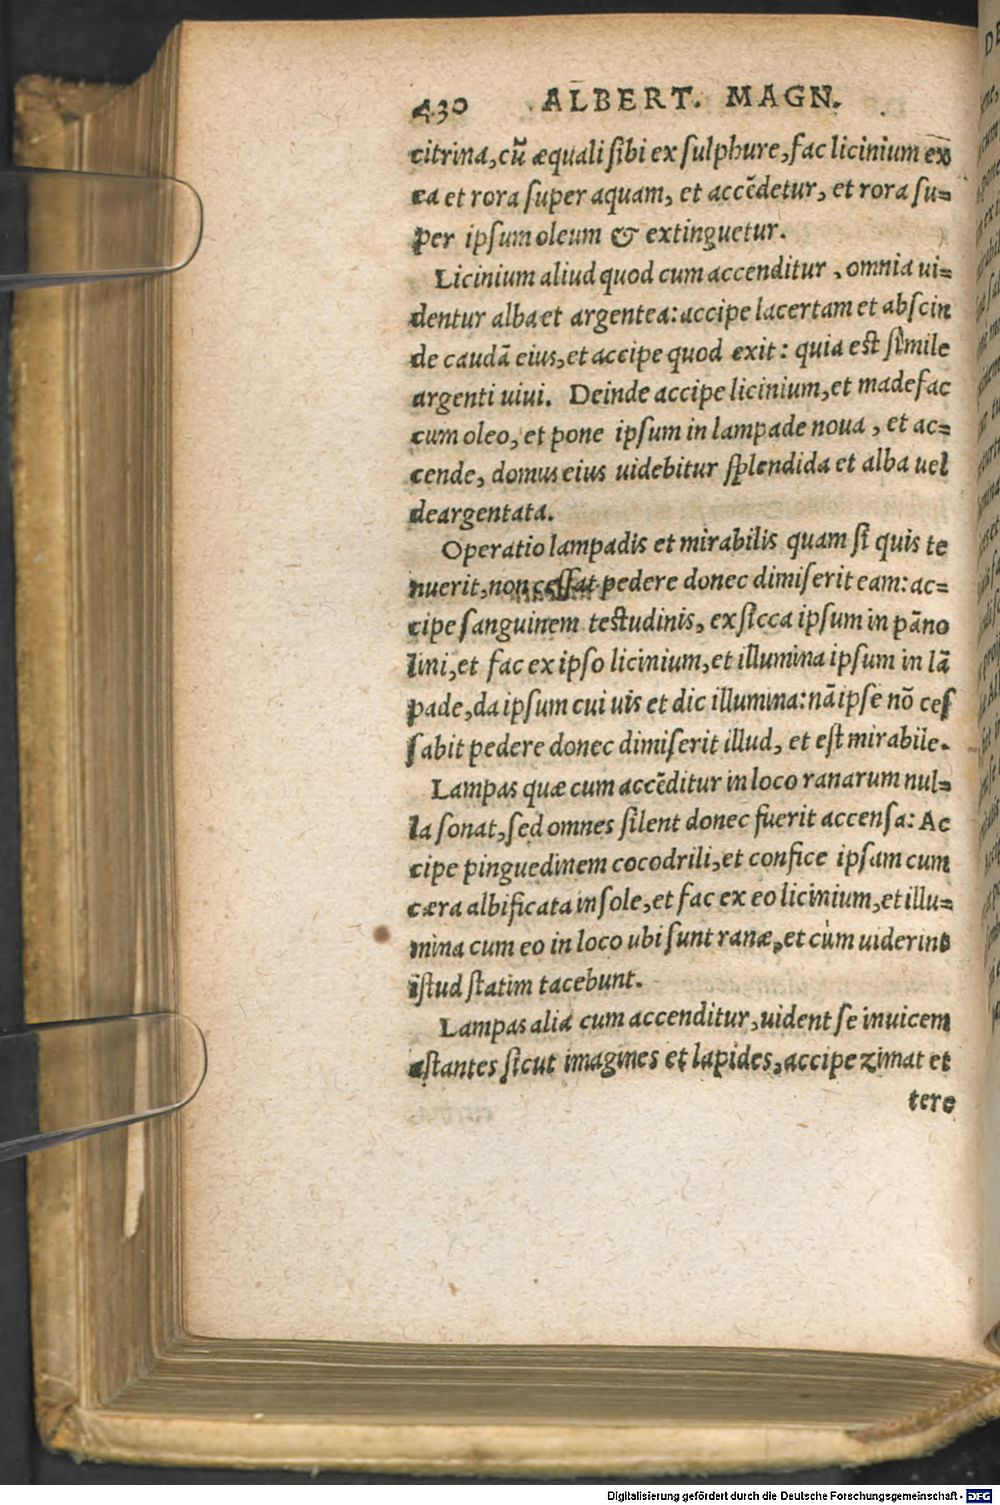 430 ALBERT. MAGN.
citrina, cũ æquali sibi ex sulphure, fac licinium ex
ea et rora super aquam, et accẽdetur, et rora su=
per ipsum oleum & extinguetur.
Licinium aliud quod cum accenditur, omnia ui=
dentur alba et argentea: accipe lacertam et abscin
de caudã eius, et accipe quod exit: quia est simile
argenti uiui. Deinde accipe licinium, et madefac
cum oleo, et pone ipsum in lampade noua, et ac=
cende, domus eius uidebitur splendida et alba uel
deargentata.
Operatio lampadis et mirabilis quam si quis te
nuerit, non cessat pedere donec dimiserit eam: ac=
cipe sanguinem testudinis, exsicca ipsum in pãno
lini, et fac ex ipso licinium, et illumina ipsum in lã
pade, da ipsum cui uis et dic illumina: nã ipse nõ ces
sabit pedere donec dimiserit illud, et est mirabile.
Lampas quæ cum accẽditur in loco ranarum nul=
la sonat, sed omnes silent donec fuerit accensa: Ac
cipe pinguedinem cocodrili, et confice ipsam cum
cæra albificata in sole, et fac ex eo licinium, et illu=
mina cum eo in loco ubi sunt ranæ, et cùm uiderint
istud statim tacebunt.
Lampas alia cum accenditur, uident se inuicem
astantes sicut imagines et lapides, accipe zimat et
tere
Digitalisierung gefördert durch die Deutsche Forschungsgemeinschaft - DFG